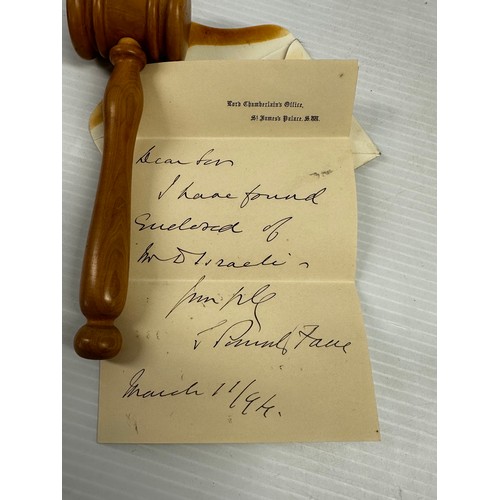 Lord Chamberlain's Office,
St James's Palace, S.W.
Dear Sir
I have found
enclosed of
Mr D'Israeli
March 11/94.